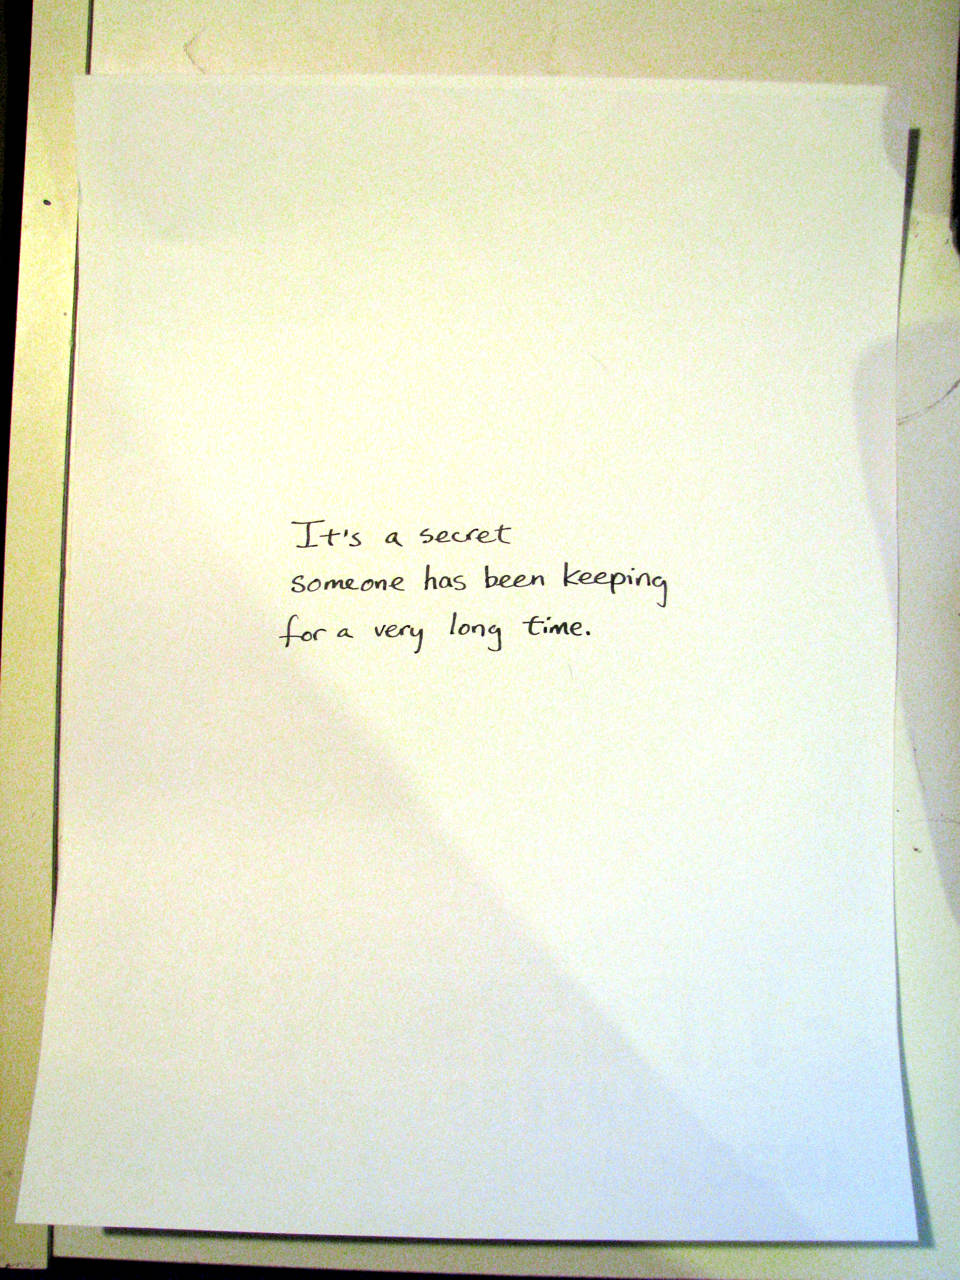 It's a secret
someone has been keeping
for a very long time.